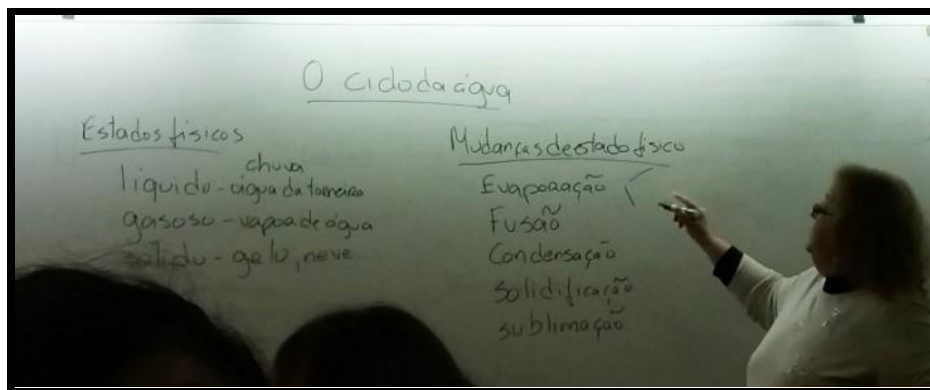 O ciclo da água
Estados físicos
chuva
líquido - água da torneira
gasoso - vapor de água
sólido - gelo, neve
Mudanças de estado físico
Evaporação
Fusão
Condensação
Solidificação
sublimação